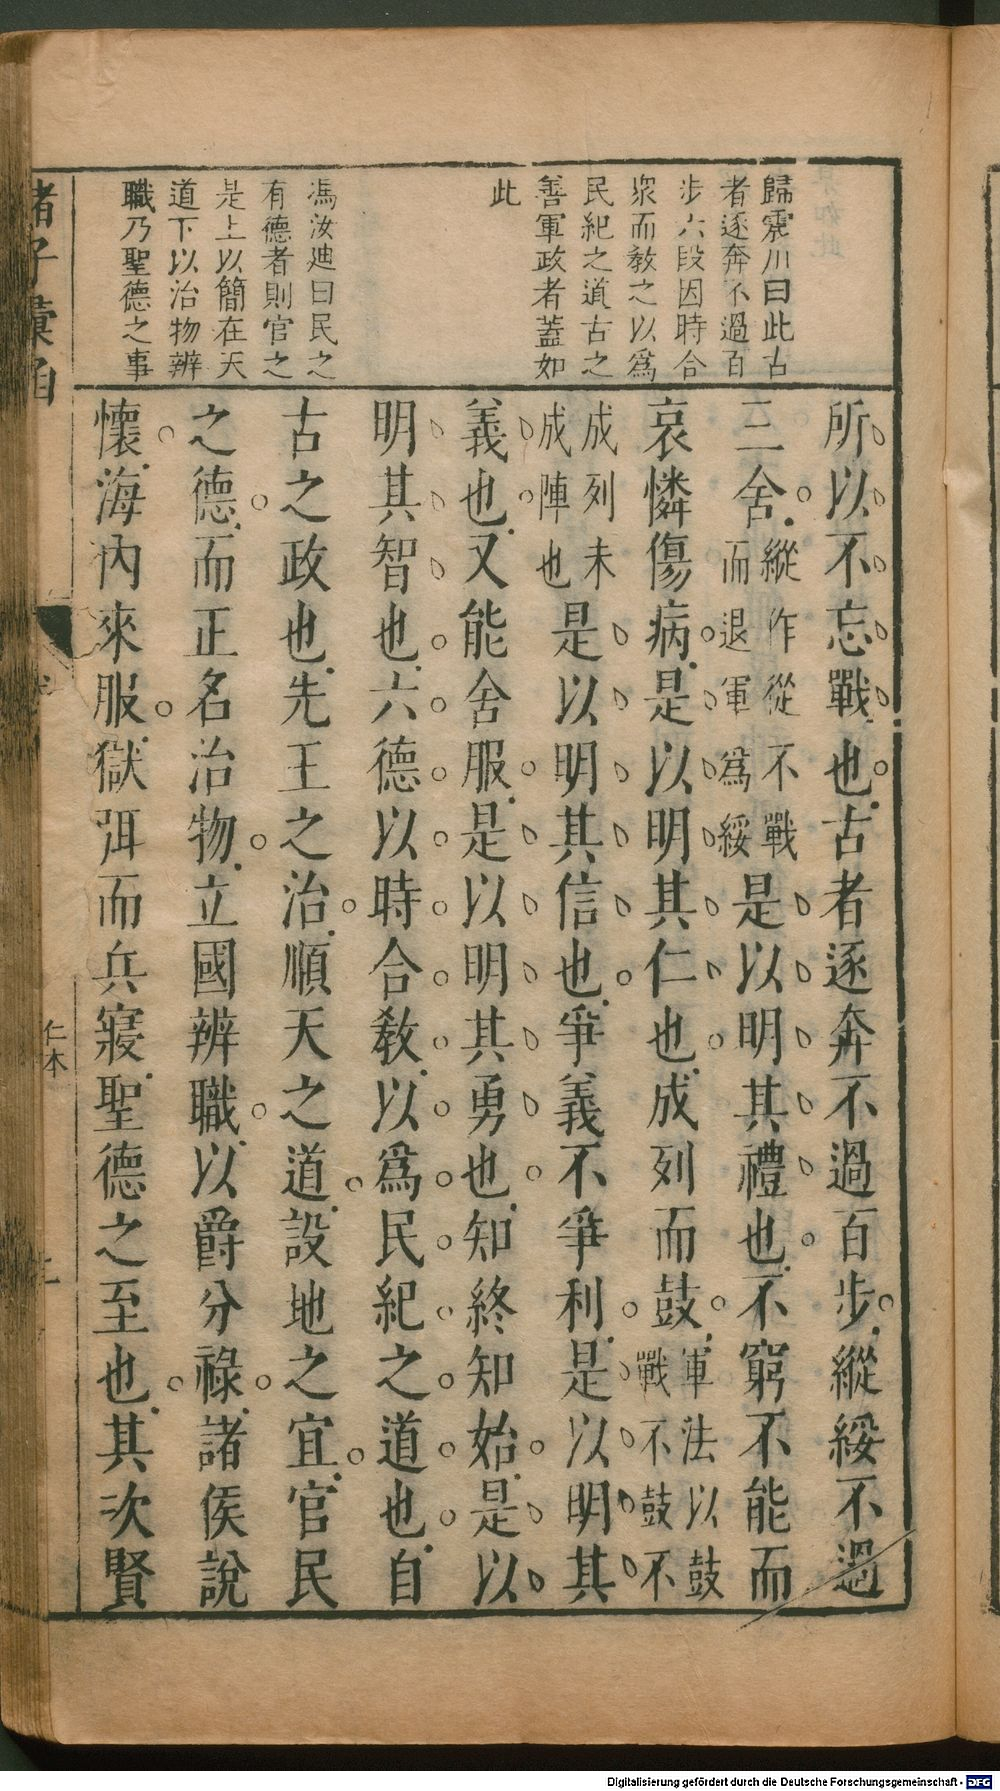 歸震川曰此古
者逐奔不過百
步六段因時合
眾而教之以爲
民紀之道古之
善軍政者蓋如
此
馮汝迪曰民之
有德者則官之
是上以簡在天
道下以治物辨
職乃聖德之事
所以不忘戰也古者逐奔不過百步縱綏不過
三舍縱作從不戰而退軍爲綏是以明其禮也不窮不能而
哀憐傷病是以明其仁也成列而鼓軍法以鼓戰不鼓不
成列未成陣也是以明其信也爭義不爭利是以明其
義也又能舍服是以明其勇也知終知始是以
明其智也六德以時合教以爲民紀之道也自
古之政也先王之治順天之道設地之宜官民
之德而正名治物立國辨職以爵分祿諸侯說
懷海內來服獄弭而兵寢聖德之至也其次賢
諸子彙函
仁本
Digitalisierung gefördert durch die Deutsche Forschungsgemeinschaft - DFG